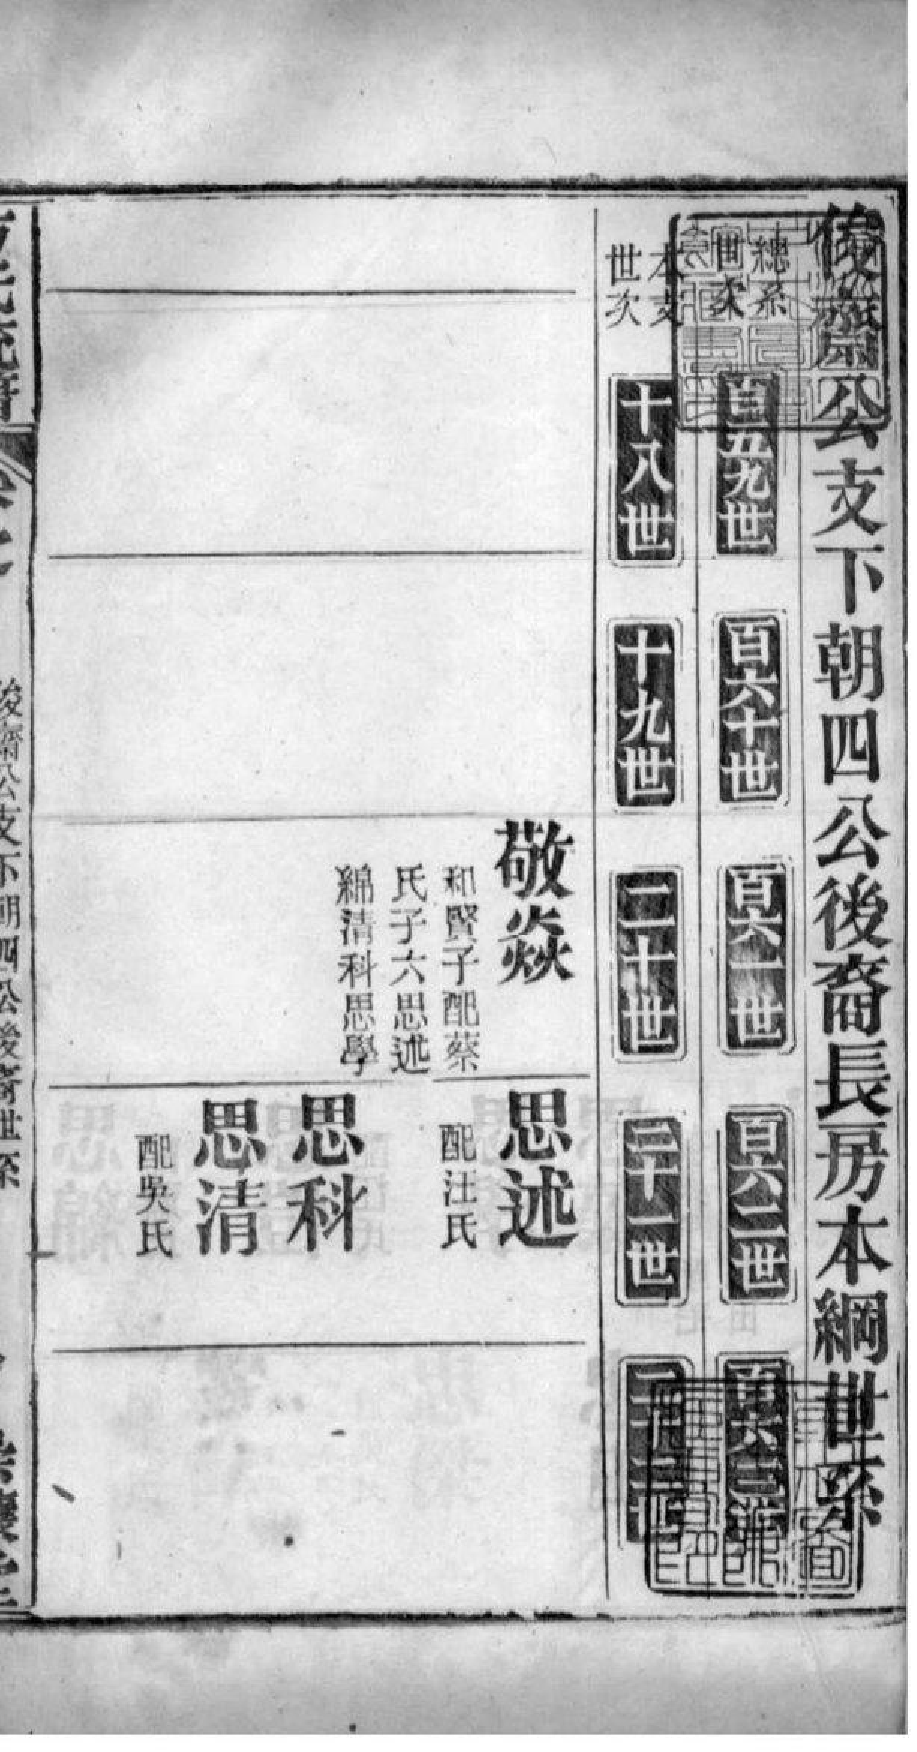 俊齋公支下朝四公後裔長房本綱世系
總系世次
百五九世
百六十世
百六一世
百六二世
百六三世
本支世次
十八世
十九世
二十世
二十一世
二十二世
敬焱
和賢子配蔡
氏子六思述
綿清科思學
思述
配汪氏
思科
思清
配吳氏
俊齋公支下朝四公後裔世系